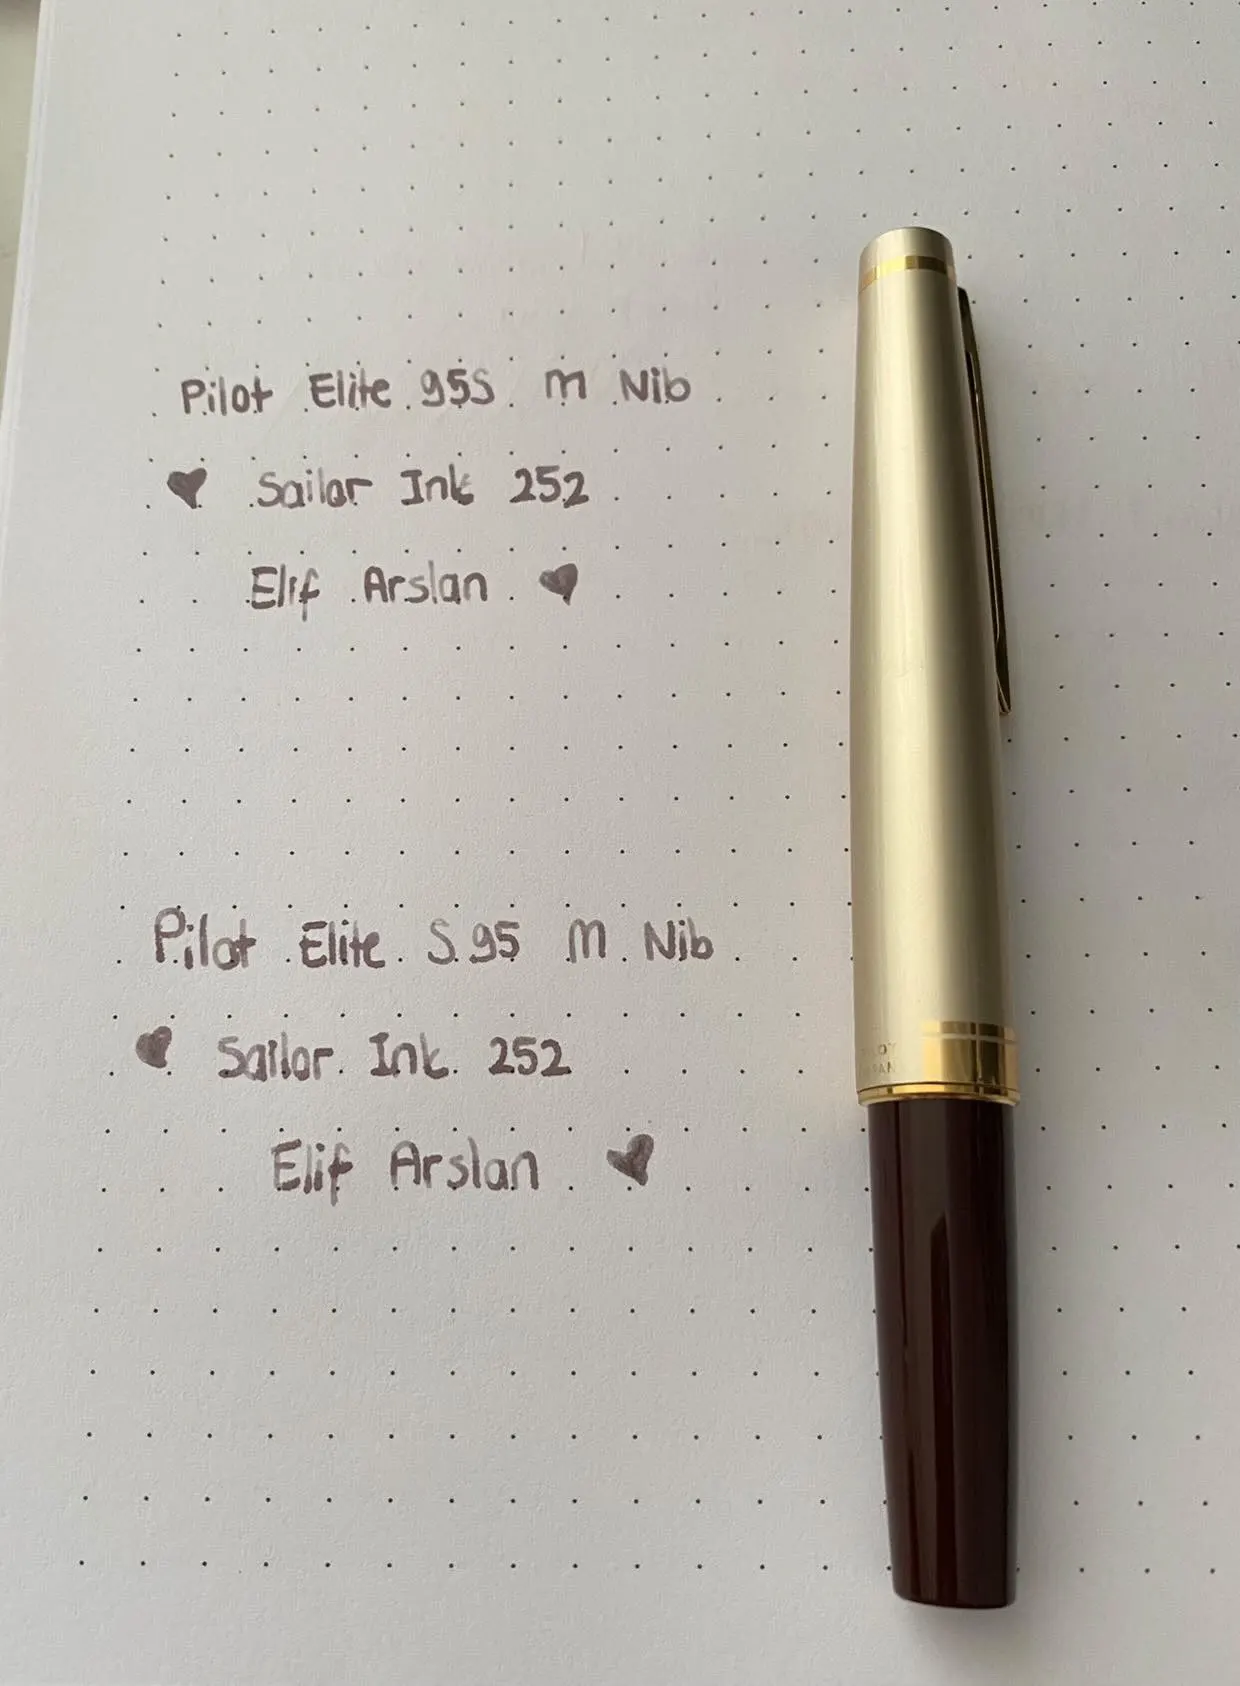 Pilot Elite 95S M Nib
♥ Sailor Ink 252
Elif Arslan ♥
Pilot Elite S95 M Nib
♥ Sailor Ink 252
Elif Arslan ♥